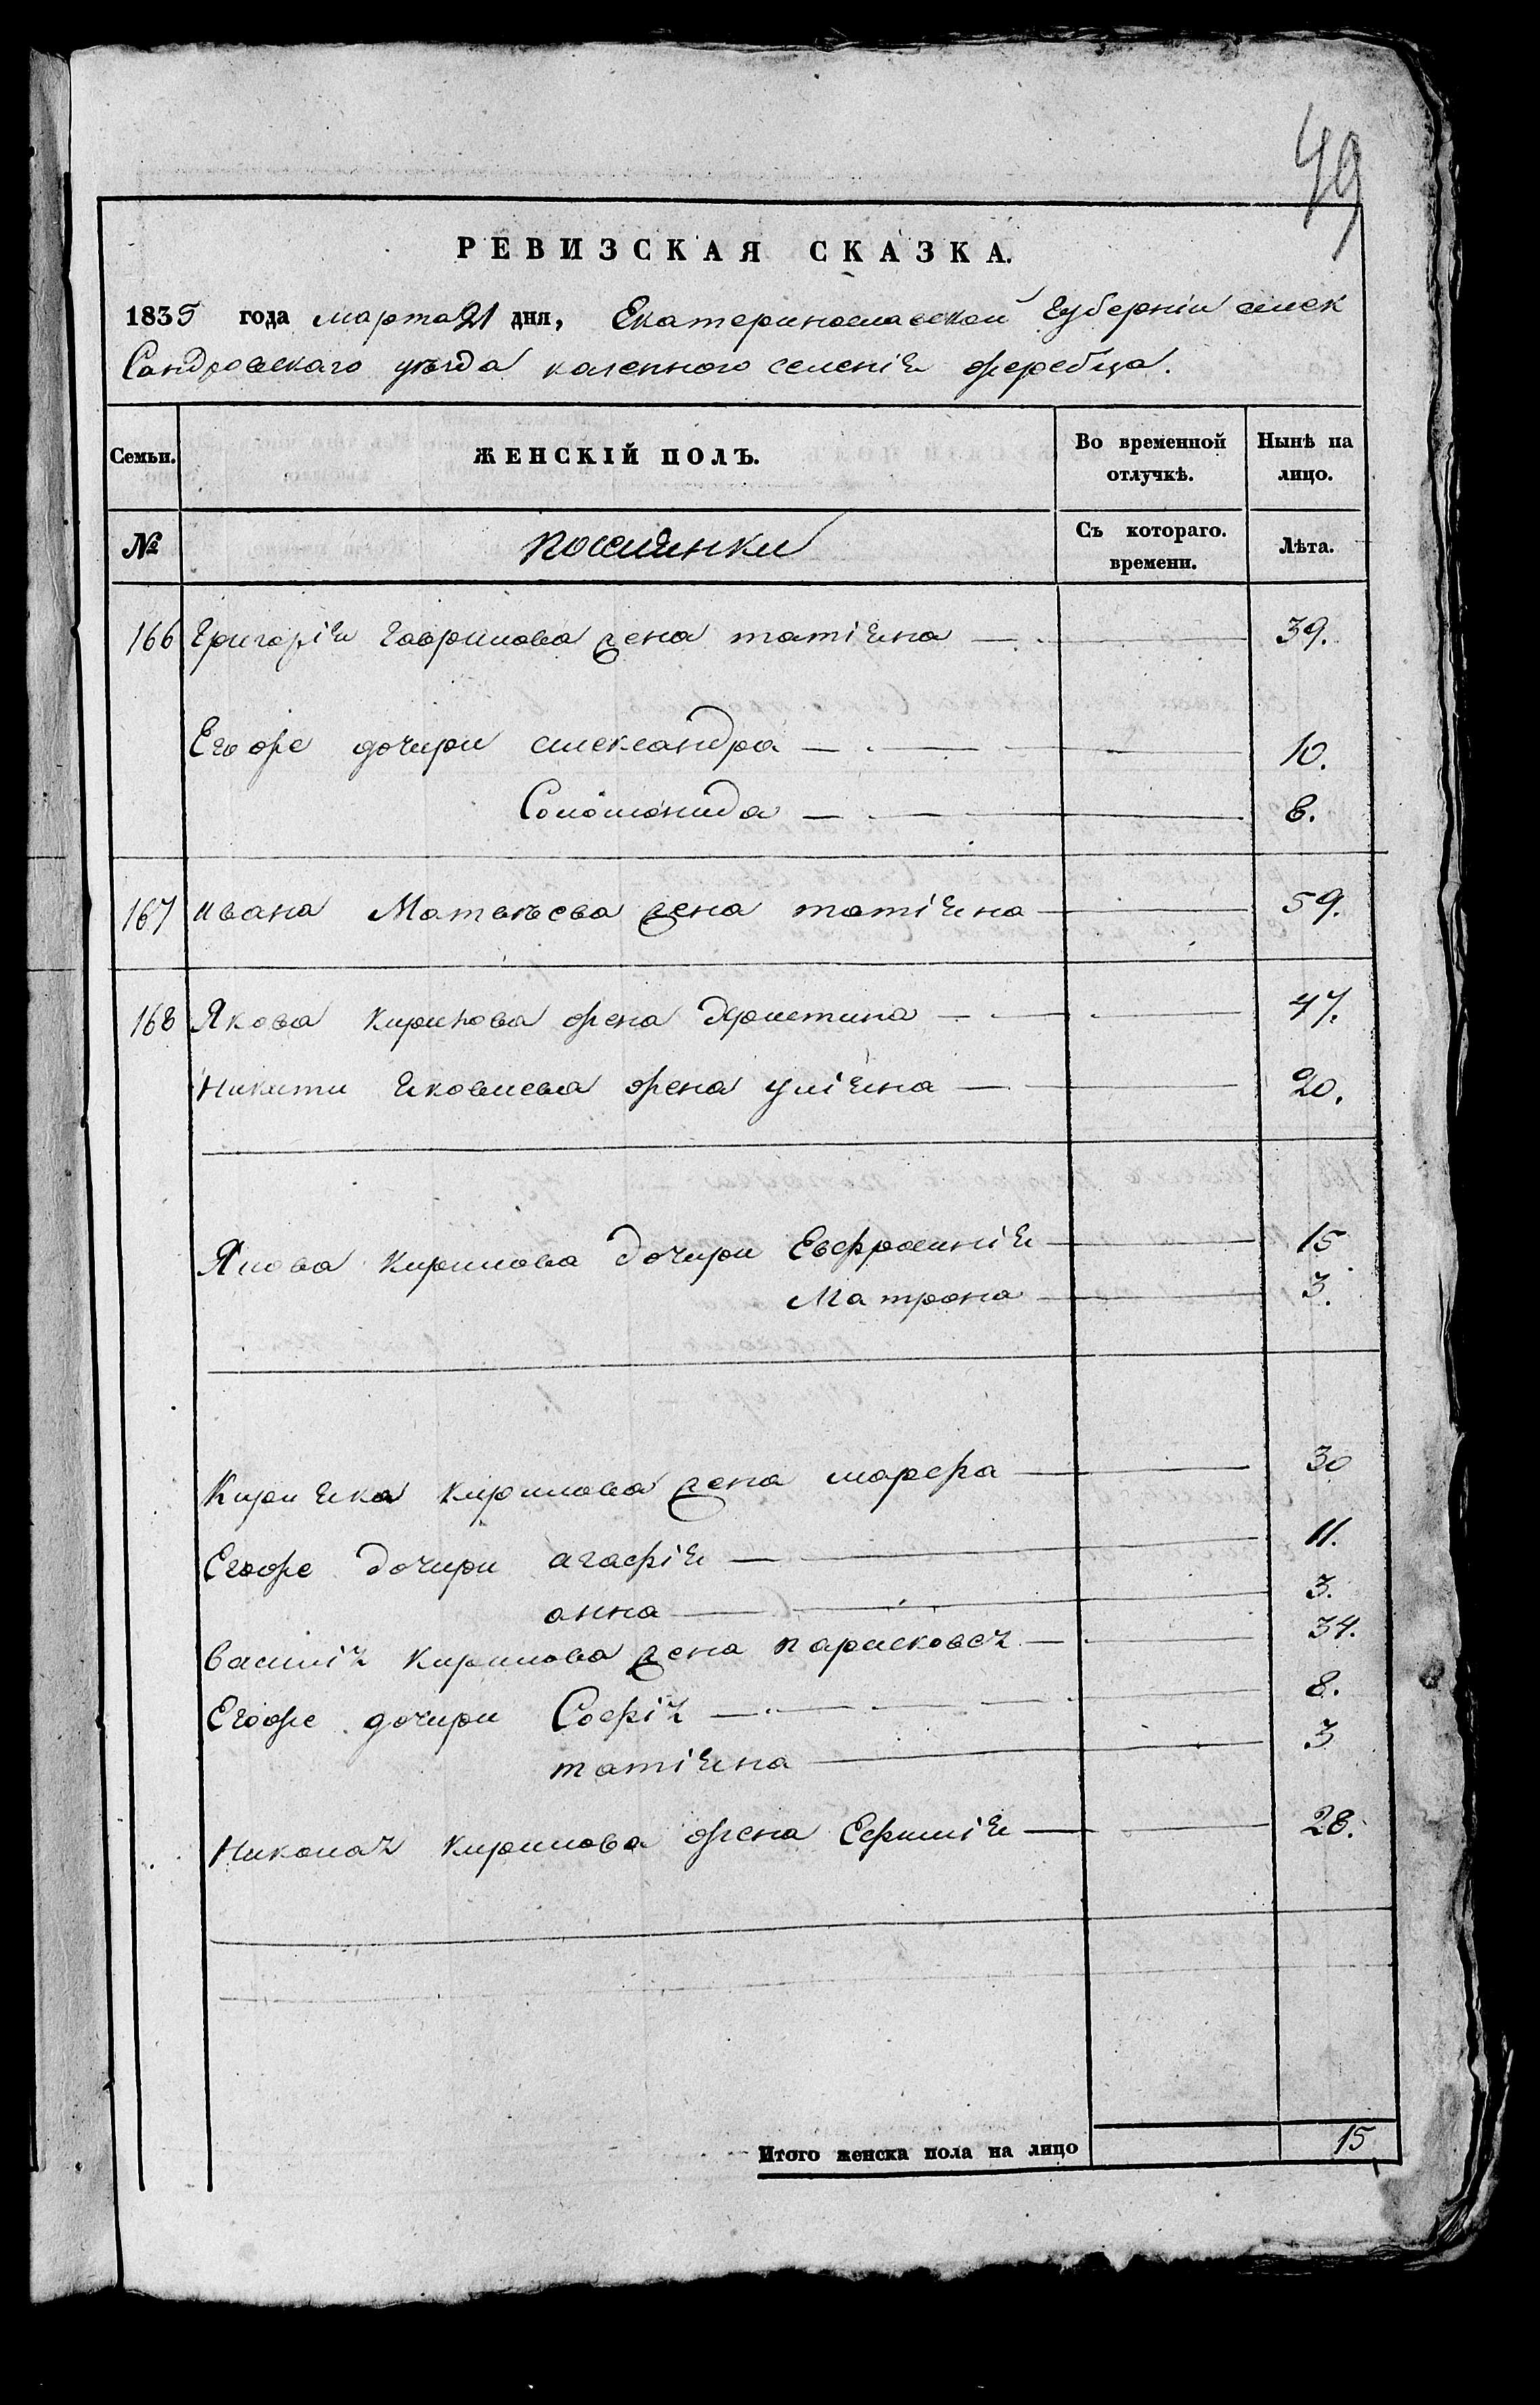 49
РЕВИЗСКАЯ СКАЗКА.
1835 года марта 21 дня, Екатеринославской Губерніи алек
Сандровскаго уѣзда казенного селенія жеребца.
Семьи. ЖЕНСКІЙ ПОЛЪ. Во временной отлучкѣ. Нынѣ на лицо.
№ Съ котораго. времени. Лѣта.
166 Григорія Гаврилова жена татіяна 39.
Его же дочири александра 10.
Соломонида 8.
167 ивана Матвѣева жена татіяна 59.
168 Якова кирилова жена 47.
Никити яковлева жена уліяна 20.
Якова кирилова дочири Евфросинія 15
Матрона 3.
Кирияка кирилова жена марфа 30
Егоже дочири агафія 11.
анна 3.
василія кирилова жена парасковея 34.
Егоже дочири Софія 8.
татіяна 3
Николая кирилова жена Ефимія 28.
Итого женска пола на лицо 15